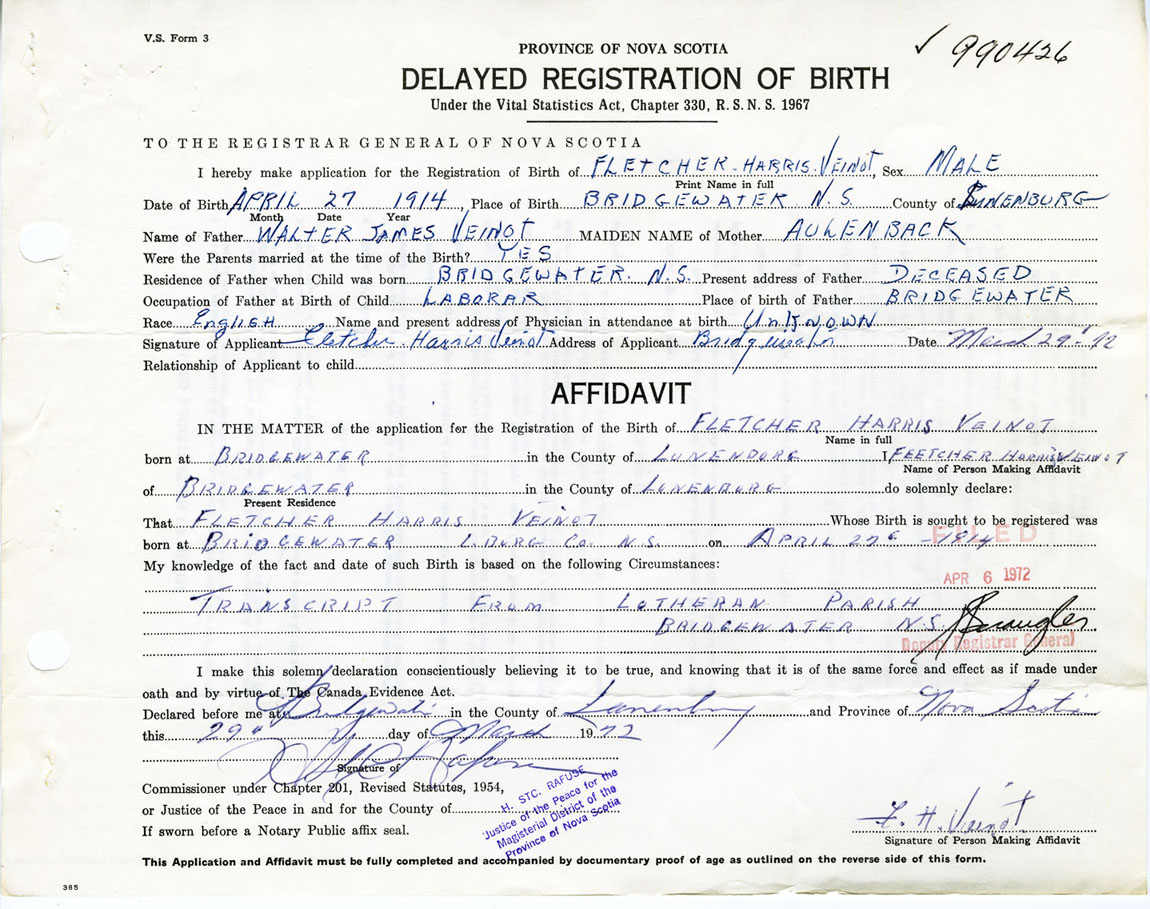 V.S. Form 3
✓ 990426
PROVINCE OF NOVA SCOTIA
DELAYED REGISTRATION OF BIRTH
Under the Vital Statistics Act, Chapter 330, R.S.N.S. 1967
TO THE REGISTRAR GENERAL OF NOVA SCOTIA
I hereby make application for the Registration of Birth of FLETCHER HARRIS VEINOT, Sex MALE
Print Name in full
Date of Birth APRIL 27 1914, Place of Birth BRIDGEWATER N.S. County of LUNENBURG
Month Date Year
Name of Father WALTER JAMES VEINOT MAIDEN NAME of Mother AULENBACK
Were the Parents married at the time of the Birth? YES
Residence of Father when Child was born BRIDGEWATER. N.S. Present address of Father DECEASED
Occupation of Father at Birth of Child LABORAR Place of birth of Father BRIDGEWATER
Race ENGLISH Name and present address of Physician in attendance at birth UNKNOWN
Signature of Applicant Fletcher Harris Veinot Address of Applicant Bridgewater Date March 29th 72
Relationship of Applicant to child
AFFIDAVIT
IN THE MATTER of the application for the Registration of the Birth of FLETCHER HARRIS VEINOT
Name in full
born at BRIDGEWATER in the County of LUNENBORG I, FLETCHER HARRIS VEINOT
Name of Person Making Affidavit
of BRIDGEWATER in the County of LUNENBURG do solemnly declare:
Present Residence
That FLETCHER HARRIS VEINOT Whose Birth is sought to be registered was
born at BRIDGEWATER L.BURG CO. N.S. on APRIL 27th - 1914
FILED
My knowledge of the fact and date of such Birth is based on the following Circumstances:
APR 6 1972
TRANSCRIPT FROM LUTHERAN PARISH
BRIDGEWATER N.S.
Deputy Registrar General
I make this solemn declaration conscientiously believing it to be true, and knowing that it is of the same force and effect as if made under
oath and by virtue of The Canada Evidence Act.
Declared before me at Bridgewater in the County of Lunenburg and Province of Nova Scotia
this 29th day of March 1972
Signature of
Commissioner under Chapter 201, Revised Statutes, 1954,
or Justice of the Peace in and for the County of
If sworn before a Notary Public affix seal.
H. STC. RAFUSE
Justice of the Peace for the
Magisterial District of the
Province of Nova Scotia
F. H. Veinot
Signature of Person Making Affidavit
This Application and Affidavit must be fully completed and accompanied by documentary proof of age as outlined on the reverse side of this form.
385